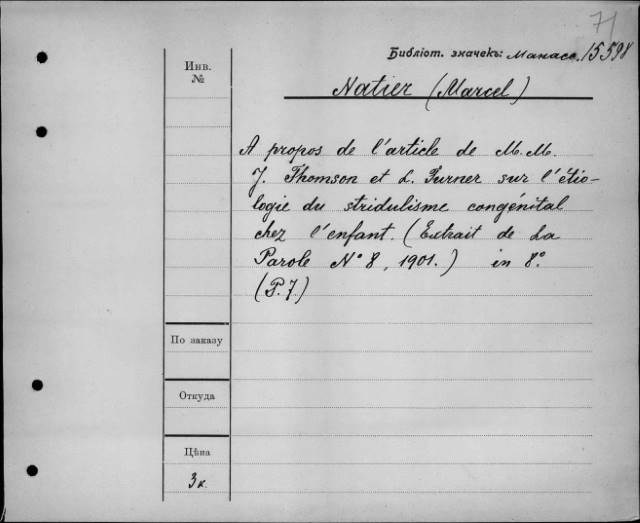 71
Библіот. значекъ: Манасс. 15598
Инв. №
Natier (Marcel)
A propos de l'article de M. M.
J. Thomson et L. Turner sur l'étio-
logie du stridulisme congénital
chez l'enfant. (Extrait de La
Parole N° 8, 1901.) in 8°.
(P. 7.)
По заказу
Откуда
Цѣна
3 к.